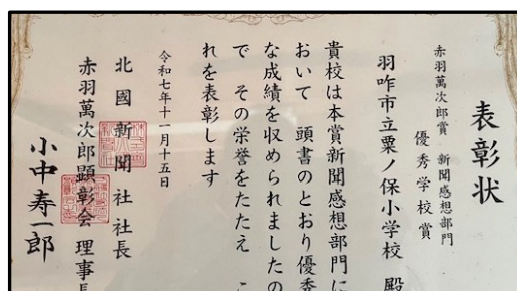 表彰状
赤羽萬次郎賞 新聞感想部門
優秀学校賞
羽咋市立粟ノ保小学校 殿
貴校は本賞新聞感想部門に
おいて 頭書のとおり優秀
な成績を収められましたの
で その栄誉をたたえ こ
れを表彰します
令和七年十一月十五日
北國新聞社社長
赤羽萬次郎顕彰会 理事長
小中寿一郎